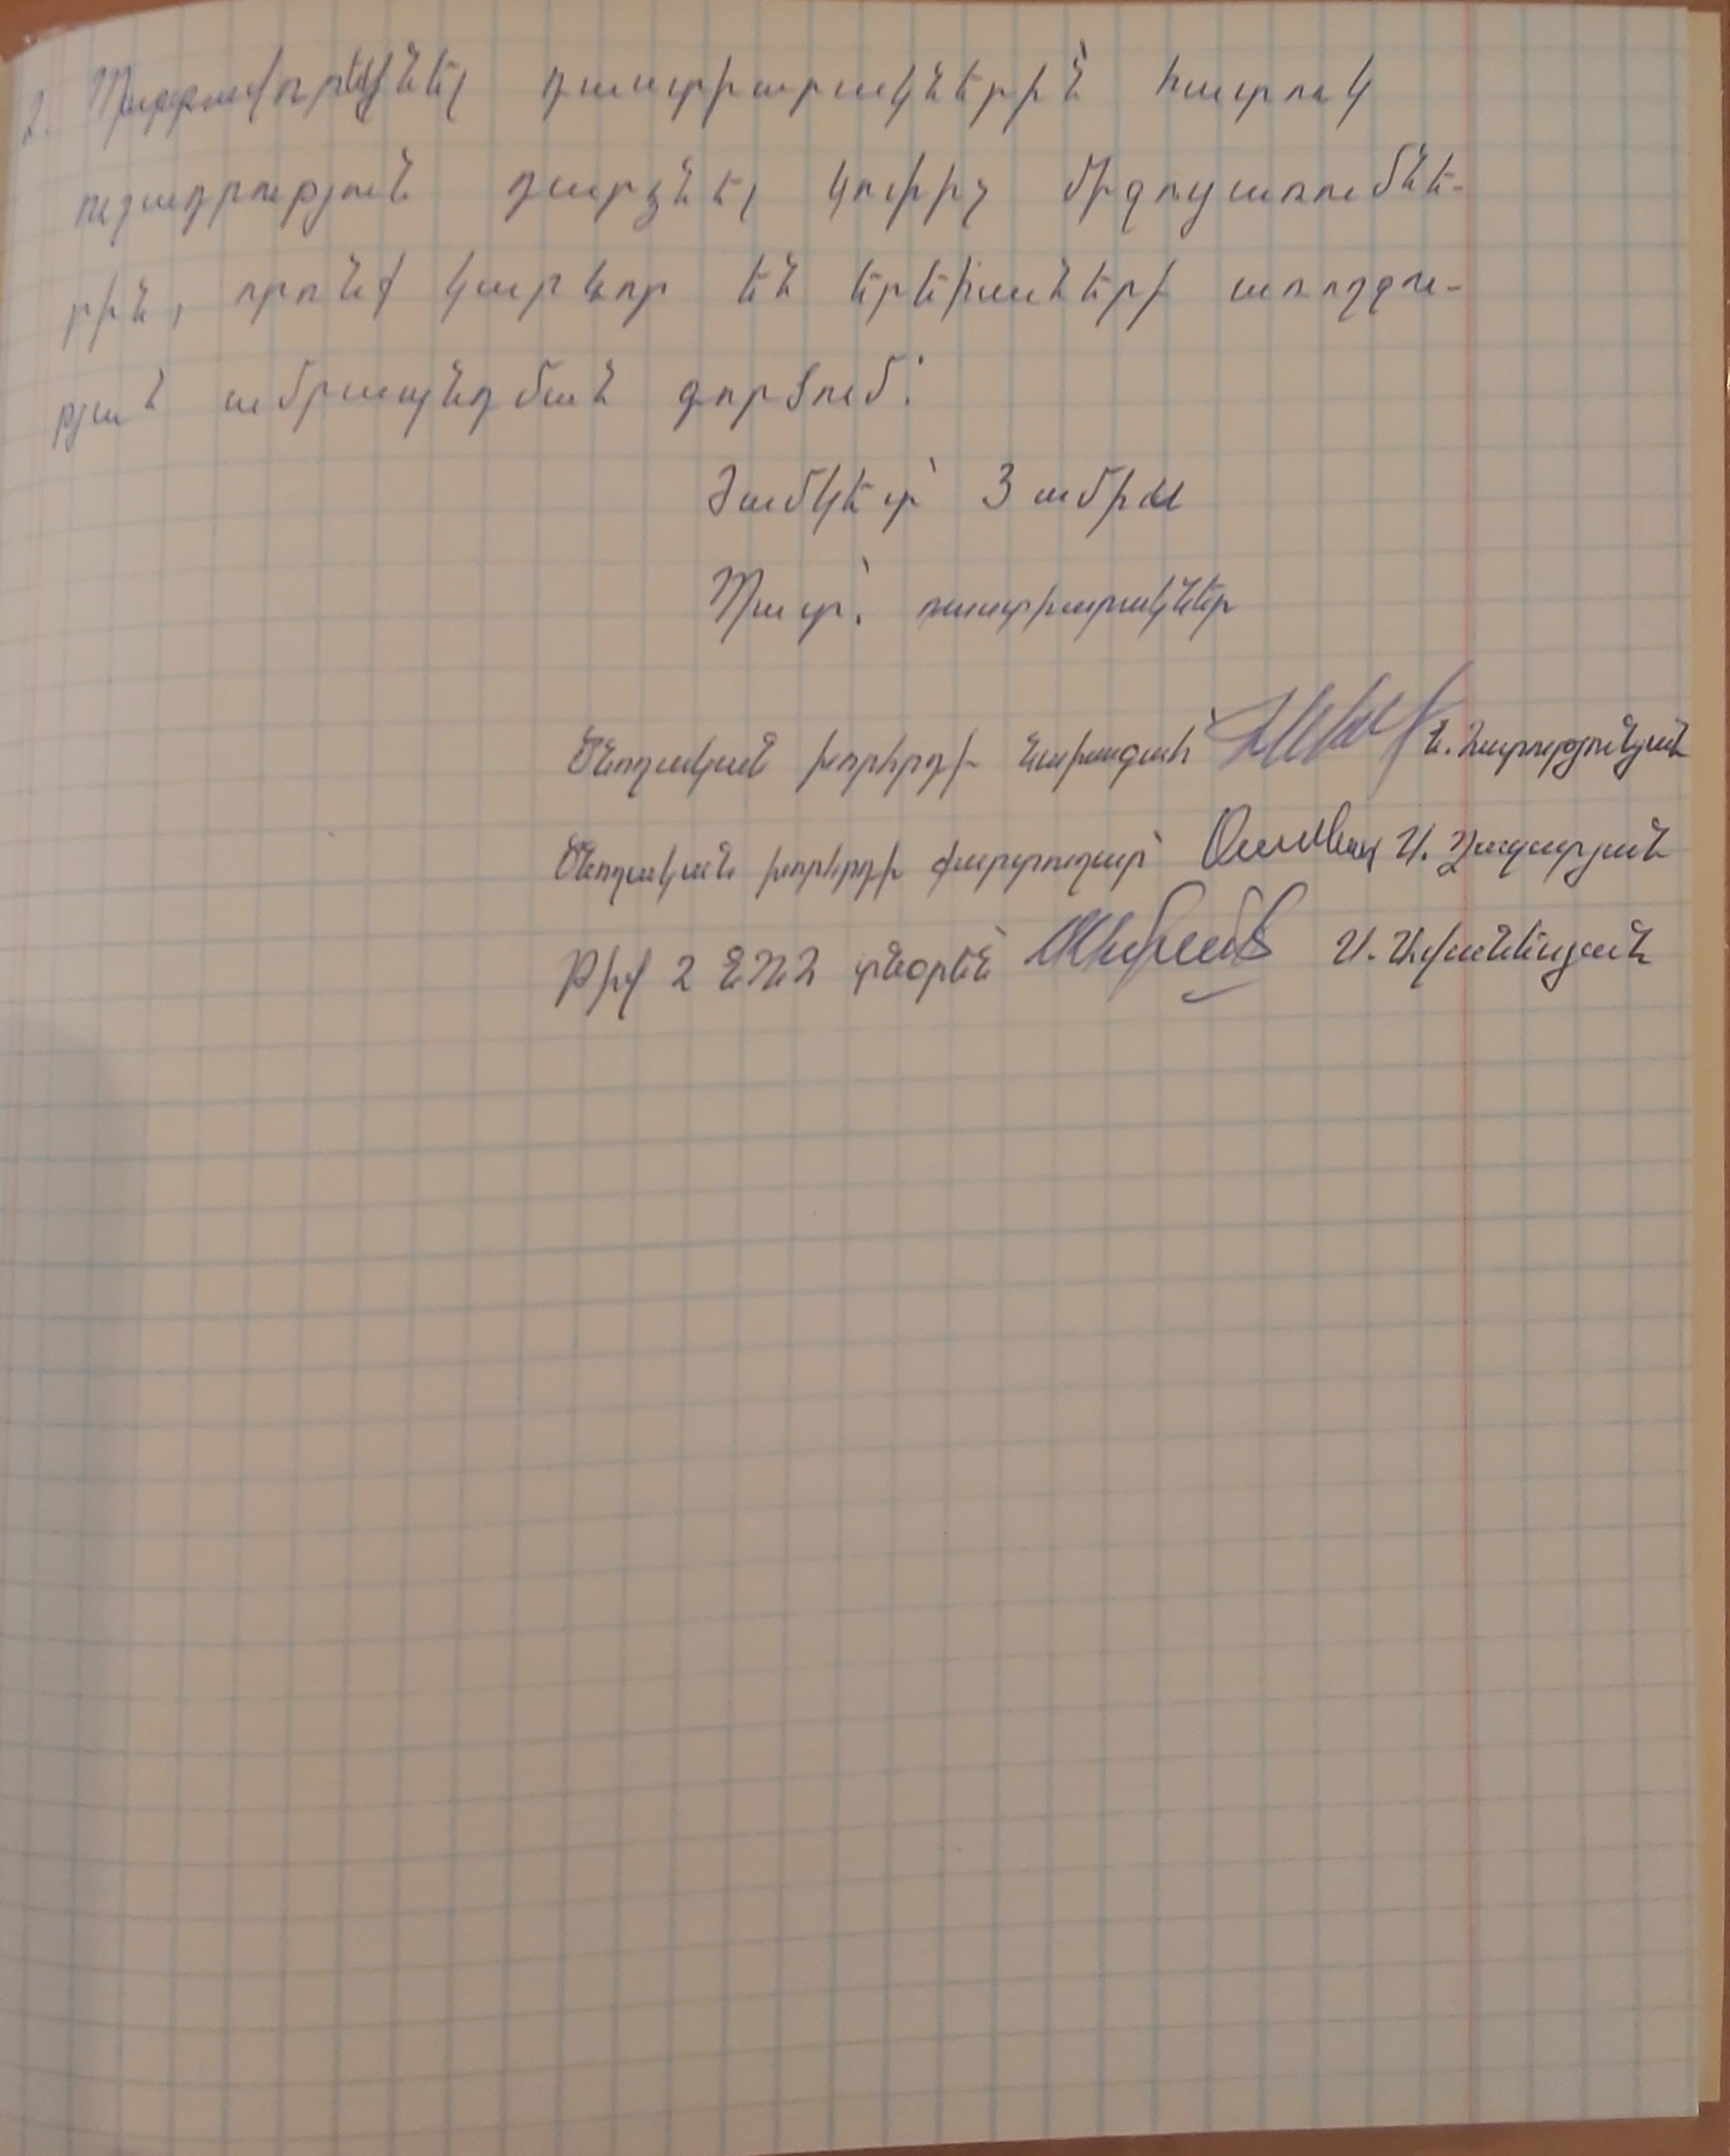 2. Պարտավորեցնել դաստիարակներին՝ հատուկ
ուշադրություն դարձնել կուրիչ միջոցառումնե-
րին, որոնք կարևոր են երեխաների առողջու-
թյան ամրապնդման գործում:
Ժամկետ՝ 3 ամիս
Պատ.՝ դաստիարակներ
Ծնողական խորհրդի նախագահ՝ Ն. Հարությունյան
Ծնողական խորհրդի քարտուղար՝ Ա. Ղազարյան
Թիվ 2 ՆՈՒՀ տնօրեն՝ Ա. Ստեփանյան